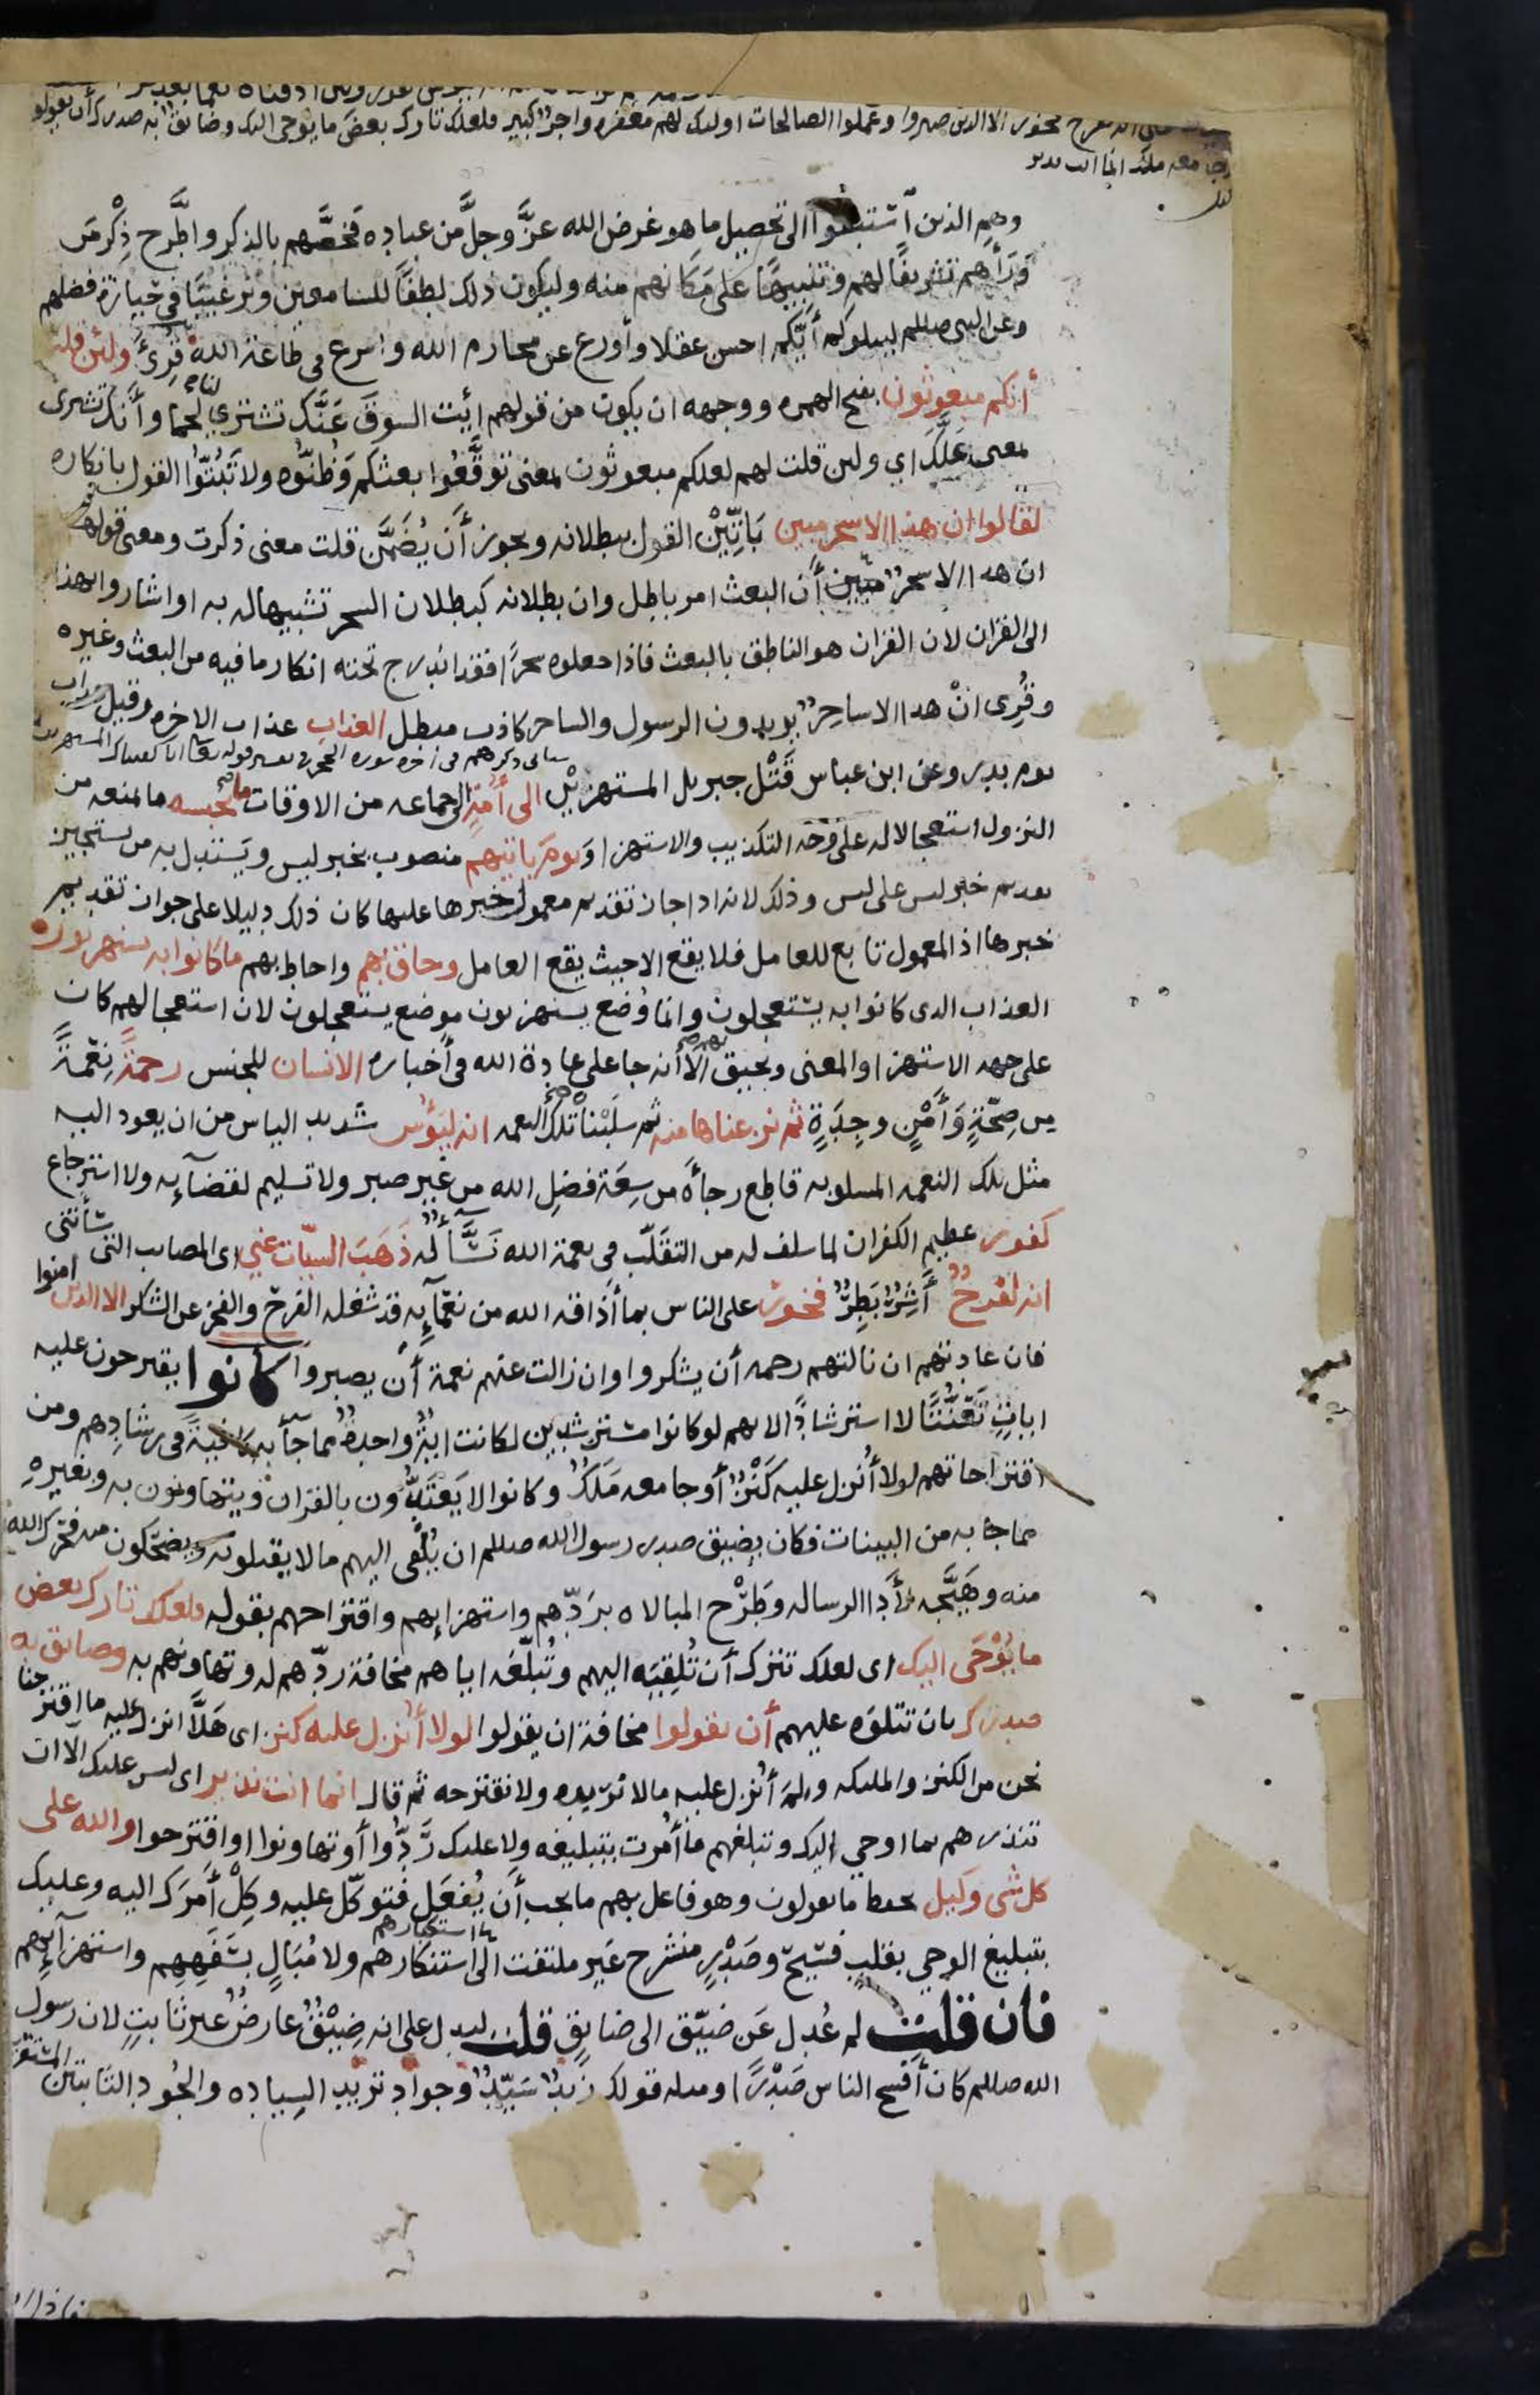 السيات عنى انه لفرح فخور الا الذين صبروا وعملوا الصالحات اولىك لهم مغفره واجرٌ كبير فلعلك تارك بعضَ ما يوحى اليك وضايقٌ به صدرك أن يقولوا
جا معه ملك انما انت نذير
وهم الذين اسْتبقوا الى تحصيل ما هو غرض الله عزَّ وجلَّ من عباده فَخصَّهم بالذكر واطَّرح ذِكْر مَن
وَرَأَهم تشريفًا لهم وتنبيهًا على مَكَانهم منه وليكون ذلك لطفًا للسامعين وترغيبًا في حِيَازة فضلهم
وعن النبى صللم ليبلوكم أَيّكم احسن عقلا وأورع عن محارم الله واسرع فى طاعة الله قُرِئَ ولئن قلت
أنكم مبعوثون بفتح الهمزه ووجهه ان يكون من قولهم ايت السوقَ عَنَّك تشترى لنا لحما وأَنك تشترى
بمعنى عَلَّك اي ولين قلت لهم لعلكم مبعوثون بمعنى توقَّعُوا بعثكم وَظُنُّوه ولا تَبُتّوُا القول بانكاره
لقالوا ان هذا الا سحر مبين بَاتِّيْنَ القول ببطلانه ويجوز أَن يُضَمَّن قلت معنى ذكرت ومعنى قولهم
ان هذا الا سحرٌ مبين أَن البعث امر باطل وان بطلانه كبطلان السحر تشبيها له به او اشاروا بهذا
الى القران لان القران هو الناطق بالبعث فاذا جعلوه سحرًا فقد اندرج تحته انكار ما فيه من البعث وغيره
وقُرِى انْ هذا الا ساحِرٌ يريدون الرسول والساحر كاذب مبطل العذاب عذاب الاخره وقيل عذاب
يوم بدر وعن ابن عباس قَتْل جبريل المستهزئين الى أمّةٍ الى جماعه من الاوقات ما يحبسه ما يمنعه من
النزول استعجالا له على وجه التكذيب والاستهزا وَيومَ ياتيهم منصوب بخبر ليس ويَستدل به من يستجيز
تقديم خبر ليس على ليس وذلك لانه اذا جاز تقديم معمول خبرها عليها كان ذلك دليلا على جواز تقديم
خبرها اذ المعمول تابع للعامل فلا يقع الا حيث يقع العامل وحاق بهم واحاط بهم ما كانوا به يستهزئون
العذاب الذى كانوا به يستعجلون وانما وُضع يستهزئون موضع يستعجلون لان استعجالهم كان
على جهه الاستهزا والمعنى ويحيق بهم الا أنه جا على عادة الله فى أخباره الانسان للجنس رحمةً نِعْمةً
من صِحّةٍ وَأَمْنٍ وجِدَةٍ ثم نزعناها منه ثم سلَبْنا تلك النعمه انه ليَؤُس شديد الياس من ان يعود اليه
مثل تلك النعمه المسلوبه قاطع رجأَه من سِعَة فضلِ الله من غير صبر ولا تسليم لقضآيِه ولا استرجاع
كفور عظيم الكفران لما سلف له من التقلّب فى نعمة الله نَشَّأ لُه ذَهَبَ السيّات عني اى المصايب التى سَأَتنى
انه لفرحٌ أَشِرٌ بَطِرٌ فخور على الناس بما أَذاقه الله من نعمآيِه قد شغله الفرح والفخر عن الشكر الا الذين امنوا
فان عادتهم ان نالتهم رحمه أن يشكروا وان زالت عنهم نعمة أن يصبروا كانوا يقترحون عليه
اياتٍ تَعَنُّتًا لا استرشادًا لانهم لو كانوا مسترشدين لكانت ايةٌ واحدةٌ مما جآ به كافيةً فى رشادِهم ومن
اقتراحاتهم لولا أُنزل عليه كَنْزٌ أَو جا معه مَلَكٌ وكانوا لا يَعْتَدُّون بالقران ويتهاونون به وبغيرهِ
مما جا به من البينات فكان يضيق صدر رسول الله صللم ان يُلْقى اليهم ما لا يقبلونه ويضحكون منه فحرّك الله
منه وهَيَّجه لأَدا الرساله وَطَرْح المبالاه برَدّهم واستهزايهم واقتراحهم بقوله فلعلك تارك بعض
ما يُوْحَى اليك اى لعلك تترك أَن تُلقِيَه اليهم وتُبلّغه اياهم مخافة ردّهم له وتهاونهم به وضايق به
صدرك بان تتلوَه عليهم أن يقولوا مخافة ان يقولوا لولا أُنزل عليه كنز اى هَلَّا انزل عليه ما اقترحنا
نحن من الكنز والمليكه ولِمَ أُنزل عليه ما لا نريده ولا نقترحه ثم قال انما انت نذير اى ليس عليك الا ان
تنذرهم بما اوحي اليك وتبلغهم ما أُمرت بتبليغه ولا عليك رَدُّوا أو تهاونوا او اقترحوا والله على
كل شى وكيل يحفظ ما يقولون وهو فاعل بهم ما يجب أَن يُفعَل فتوكّل عليه وكِلْ أَمرَك اليه وعليك
بتبليغ الوحي بقلبٍ فَسيحٍ وصَدْرٍ منشرح غير ملتفت الى استنكارهم ولا مُبَالٍ بسَفَهِهِم واستهزآيِهم
فان قلت لم عُدِل عَن ضيّق الى ضايق قلت ليدل على انه ضِيْقٌ عارضٌ غير ثابتٍ لان رسول
الله صللم كان أفسح الناس صَدْرًا ومثله قولك زيدٌ سَيّدٌ وجواد تريد السياده والجُود الثابتين المستقرين